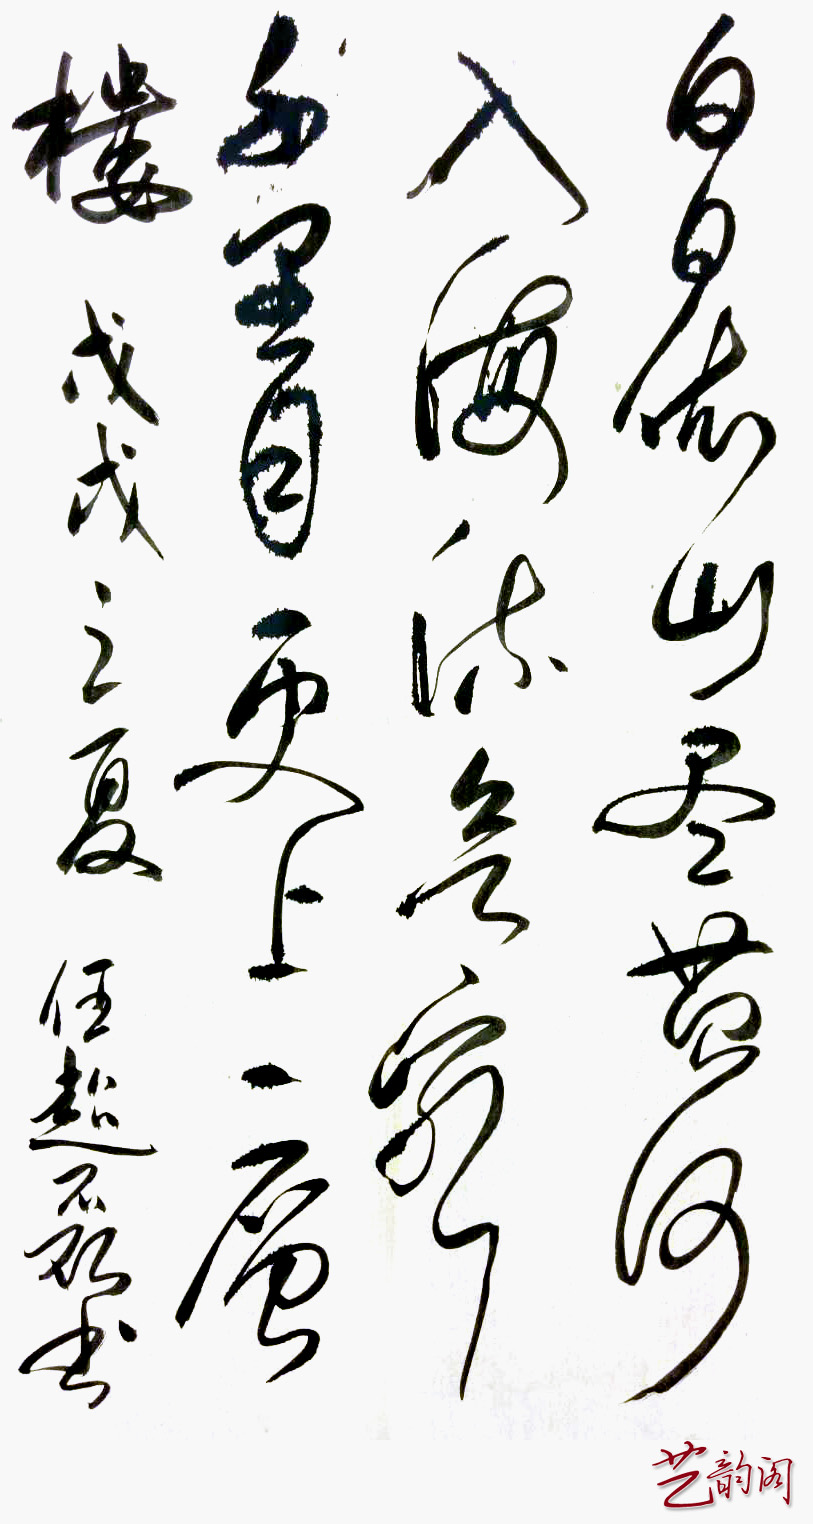 白日依山尽黄河
入海流欲窮
千里目更上一層
樓 戊戌之夏 任超磊书
艺韵阁